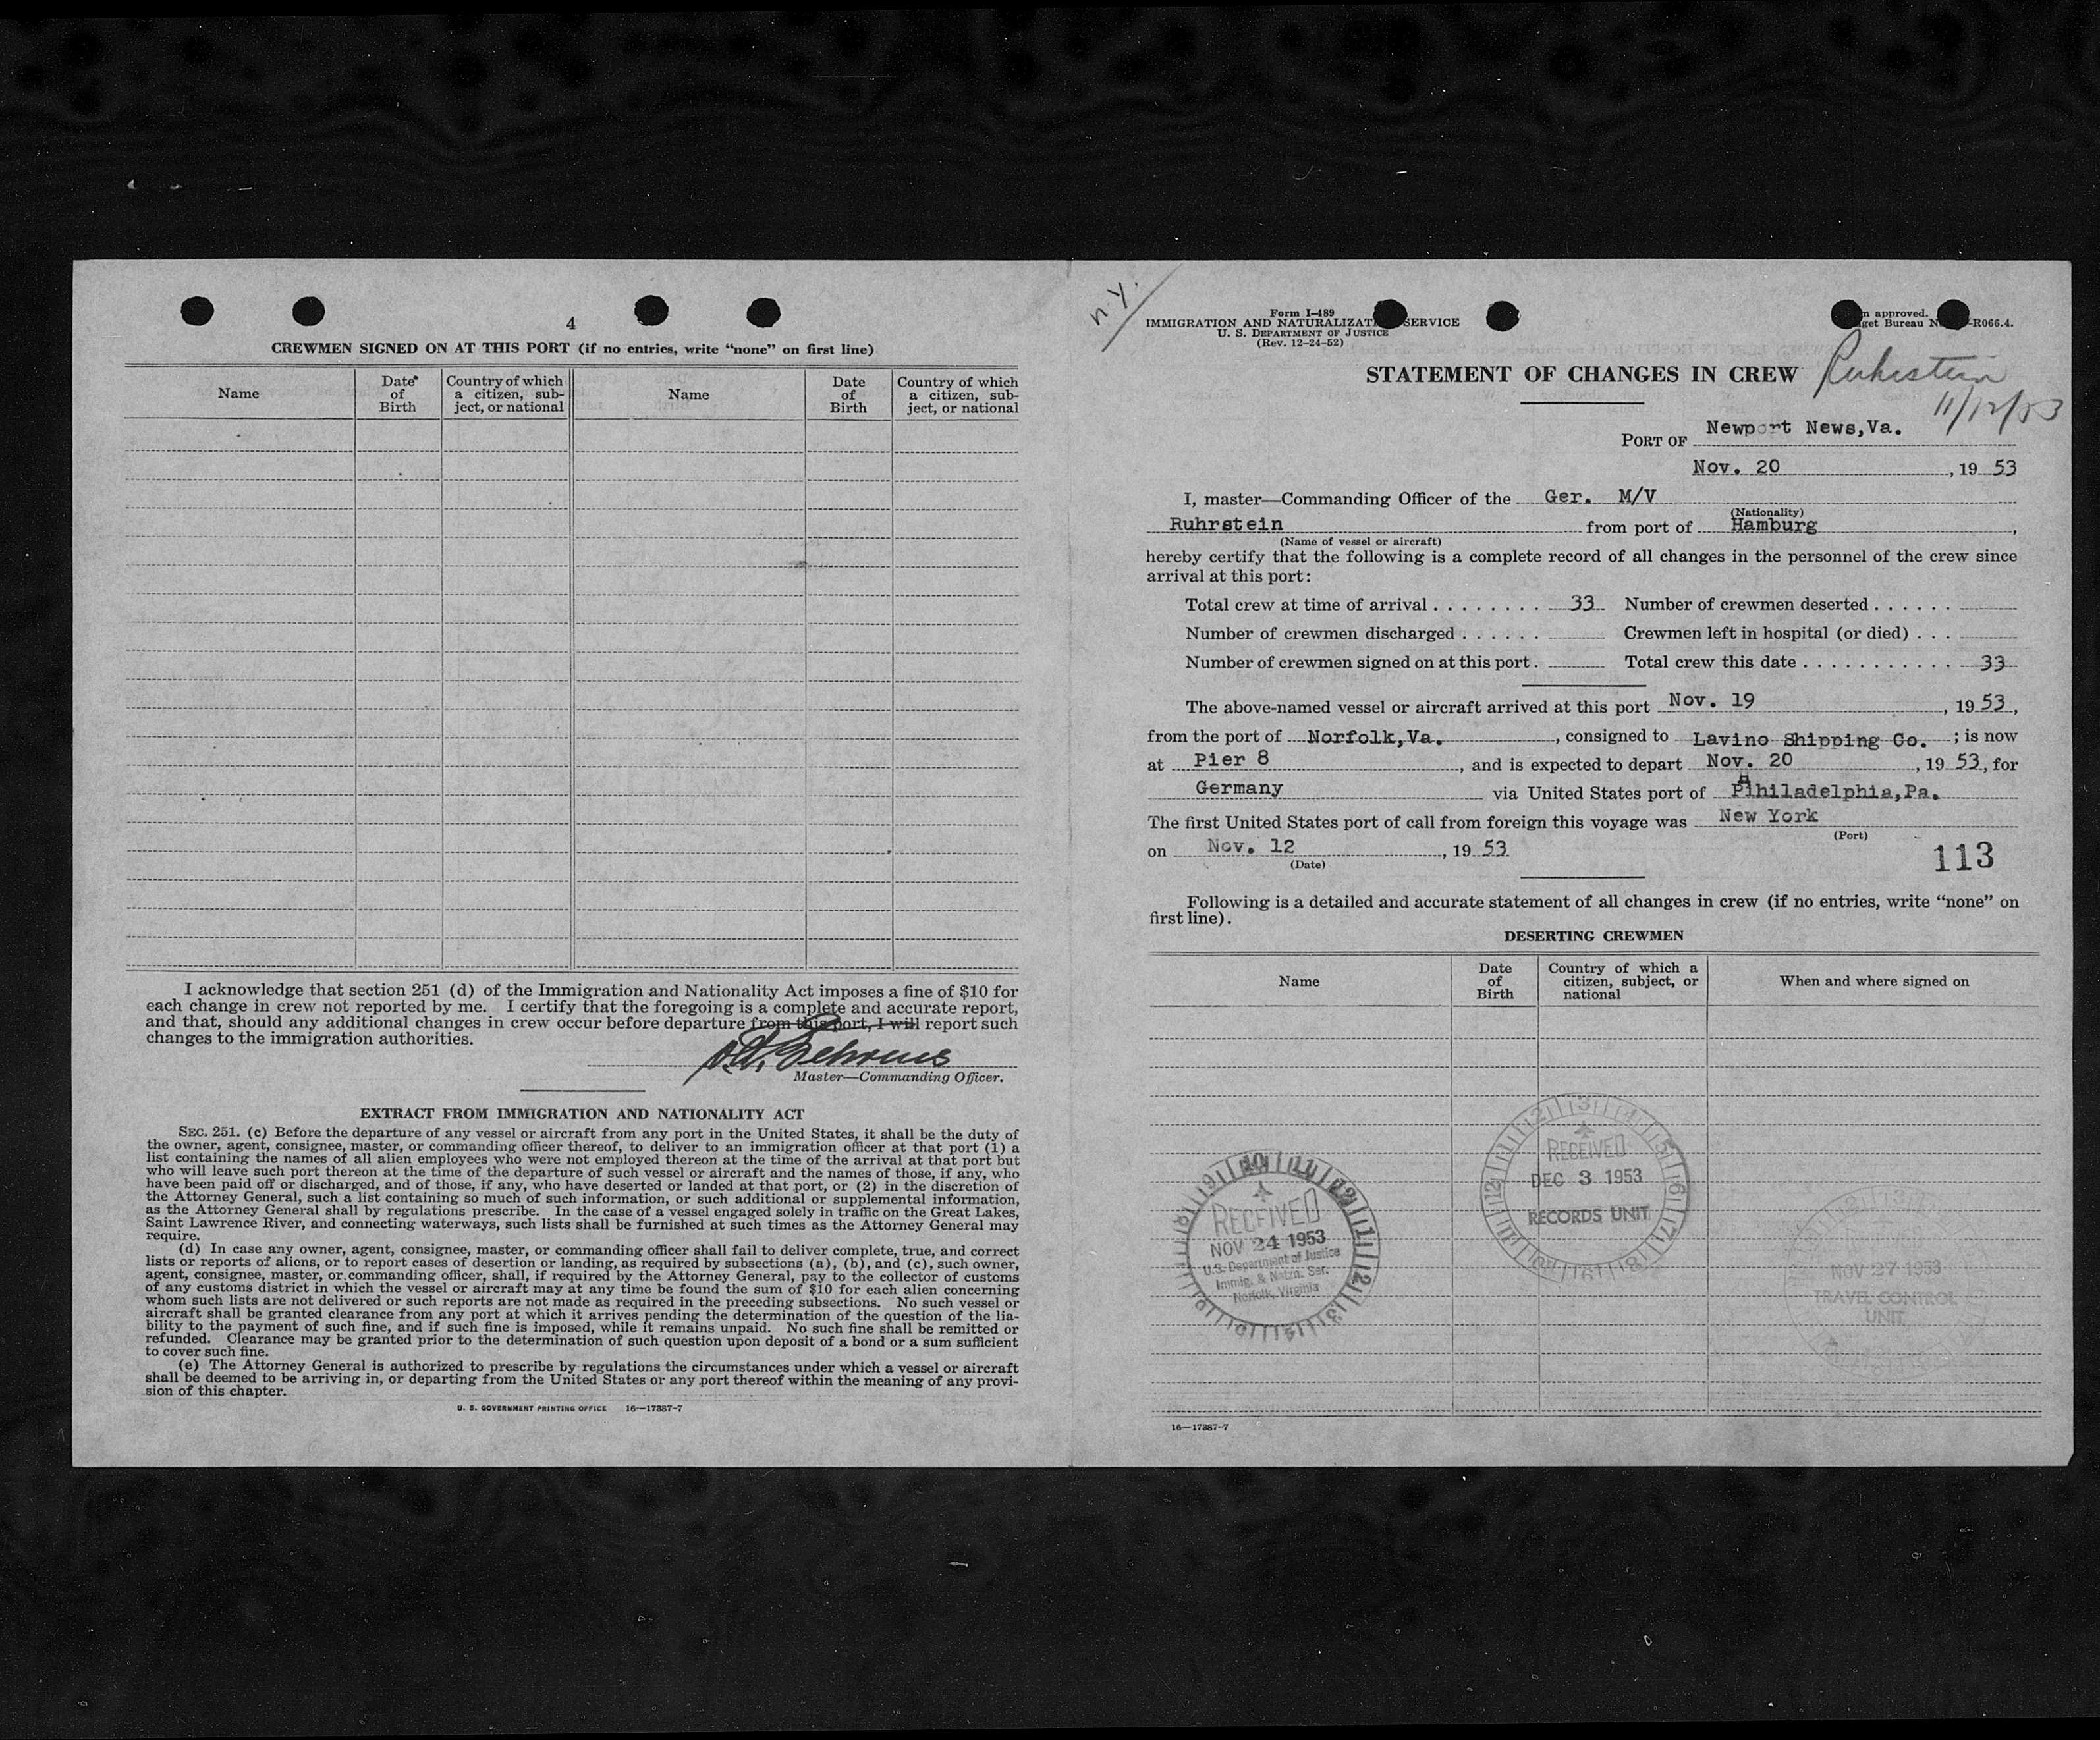 4
CREWMEN SIGNED ON AT THIS PORT (if no entries, write “none” on first line)
Name
Date of Birth
Country of which a citizen, sub-
ject, or national
Name
Date of Birth
Country of which a citizen, sub-
ject, or national
I acknowledge that section 251 (d) of the Immigration and Nationality Act imposes a fine of $10 for
each change in crew not reported by me. I certify that the foregoing is a complete and accurate report,
and that, should any additional changes in crew occur before departure from this port, I will report such
changes to the immigration authorities.
Master—Commanding Officer.
EXTRACT FROM IMMIGRATION AND NATIONALITY ACT
SEC. 251. (c) Before the departure of any vessel or aircraft from any port in the United States, it shall be the duty of
the owner, agent, consignee, master, or commanding officer thereof, to deliver to an immigration officer at that port (1) a
list containing the names of all alien employees who were not employed thereon at the time of the arrival at that port but
who will leave such port thereon at the time of the departure of such vessel or aircraft and the names of those, if any, who
have been paid off or discharged, and of those, if any, who have deserted or landed at that port, or (2) in the discretion of
the Attorney General, such a list containing so much of such information, or such additional or supplemental information,
as the Attorney General shall by regulations prescribe. In the case of a vessel engaged solely in traffic on the Great Lakes,
Saint Lawrence River, and connecting waterways, such lists shall be furnished at such times as the Attorney General may
require.
(d) In case any owner, agent, consignee, master, or commanding officer shall fail to deliver complete, true, and correct
lists or reports of aliens, or to report cases of desertion or landing, as required by subsections (a), (b), and (c), such owner,
agent, consignee, master, or commanding officer, shall, if required by the Attorney General, pay to the collector of customs
of any customs district in which the vessel or aircraft may at any time be found the sum of $10 for each alien concerning
whom such lists are not delivered or such reports are not made as required in the preceding subsections. No such vessel or
aircraft shall be granted clearance from any port at which it arrives pending the determination of the question of the lia-
bility to the payment of such fine, and if such fine is imposed, while it remains unpaid. No such fine shall be remitted or
refunded. Clearance may be granted prior to the determination of such question upon deposit of a bond or a sum sufficient
to cover such fine.
(e) The Attorney General is authorized to prescribe by regulations the circumstances under which a vessel or aircraft
shall be deemed to be arriving in, or departing from the United States or any port thereof within the meaning of any provi-
sion of this chapter.
U. S. GOVERNMENT PRINTING OFFICE 16—17387-7
n.y.
Form I-489
IMMIGRATION AND NATURALIZAT SERVICE
U. S. DEPARTMENT OF JUSTICE
(Rev. 12-24-52)
m approved.
get Bureau N -R066.4.
STATEMENT OF CHANGES IN CREW
Ruhrstein
11/12/53
PORT OF Newport News,Va.
Nov. 20, 19 53
I, master—Commanding Officer of the Ger. M/V
(Nationality)
Ruhrstein from port of Hamburg,
(Name of vessel or aircraft)
hereby certify that the following is a complete record of all changes in the personnel of the crew since
arrival at this port:
Total crew at time of arrival . . . . . . . . 33 Number of crewmen deserted . . . . . .
Number of crewmen discharged . . . . . . Crewmen left in hospital (or died) . . .
Number of crewmen signed on at this port . Total crew this date . . . . . . . . . . . 33
The above-named vessel or aircraft arrived at this port Nov. 19, 19 53,
from the port of Norfolk,Va., consigned to Lavino Shipping Co.; is now
at Pier 8, and is expected to depart Nov. 20, 19 53, for
Germany via United States port of Philadelphia,Pa.
The first United States port of call from foreign this voyage was New York
(Port)
on Nov. 12, 19 53
(Date)
113
Following is a detailed and accurate statement of all changes in crew (if no entries, write “none” on
first line).
DESERTING CREWMEN
Name
Date of Birth
Country of which a citizen, subject, or national
When and where signed on
RECEIVED
NOV 24 1953
U.S. Department of Justice
Immig. & Natzn. Ser.
Norfolk, Virginia
RECEIVED
DEC 3 1953
RECORDS UNIT
NOV 27 1953
TRAVEL CONTROL
UNIT
16—17387-7